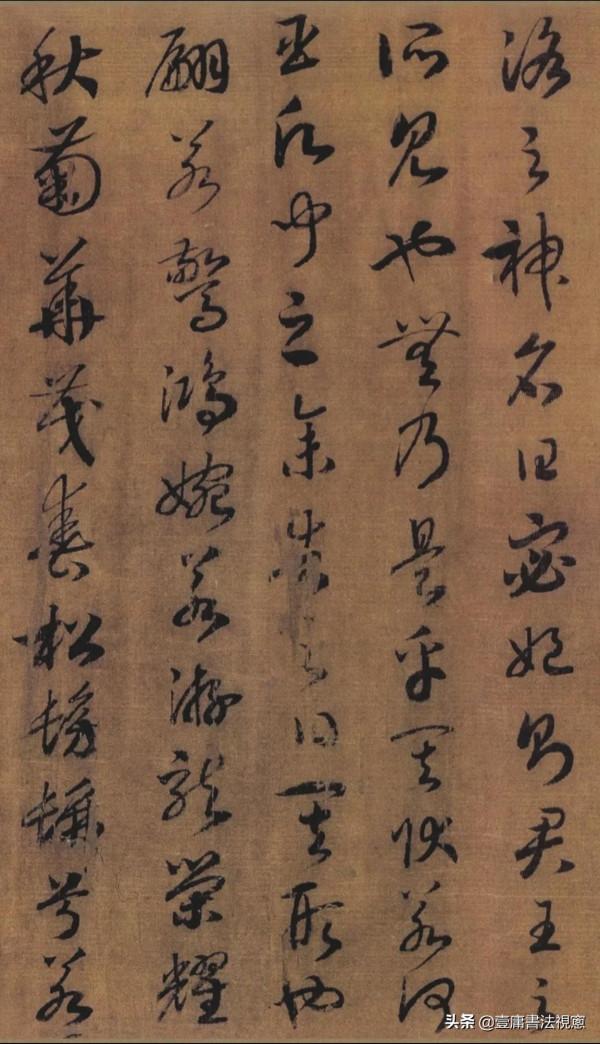 洛之神名曰宓妃則君王之
所見也無乃是乎其狀若何
臣願聞之余告之曰其形也
翩若驚鴻婉若游龍榮耀
秋菊華茂春松髣髴兮若
头条 @壹庸書法視窻